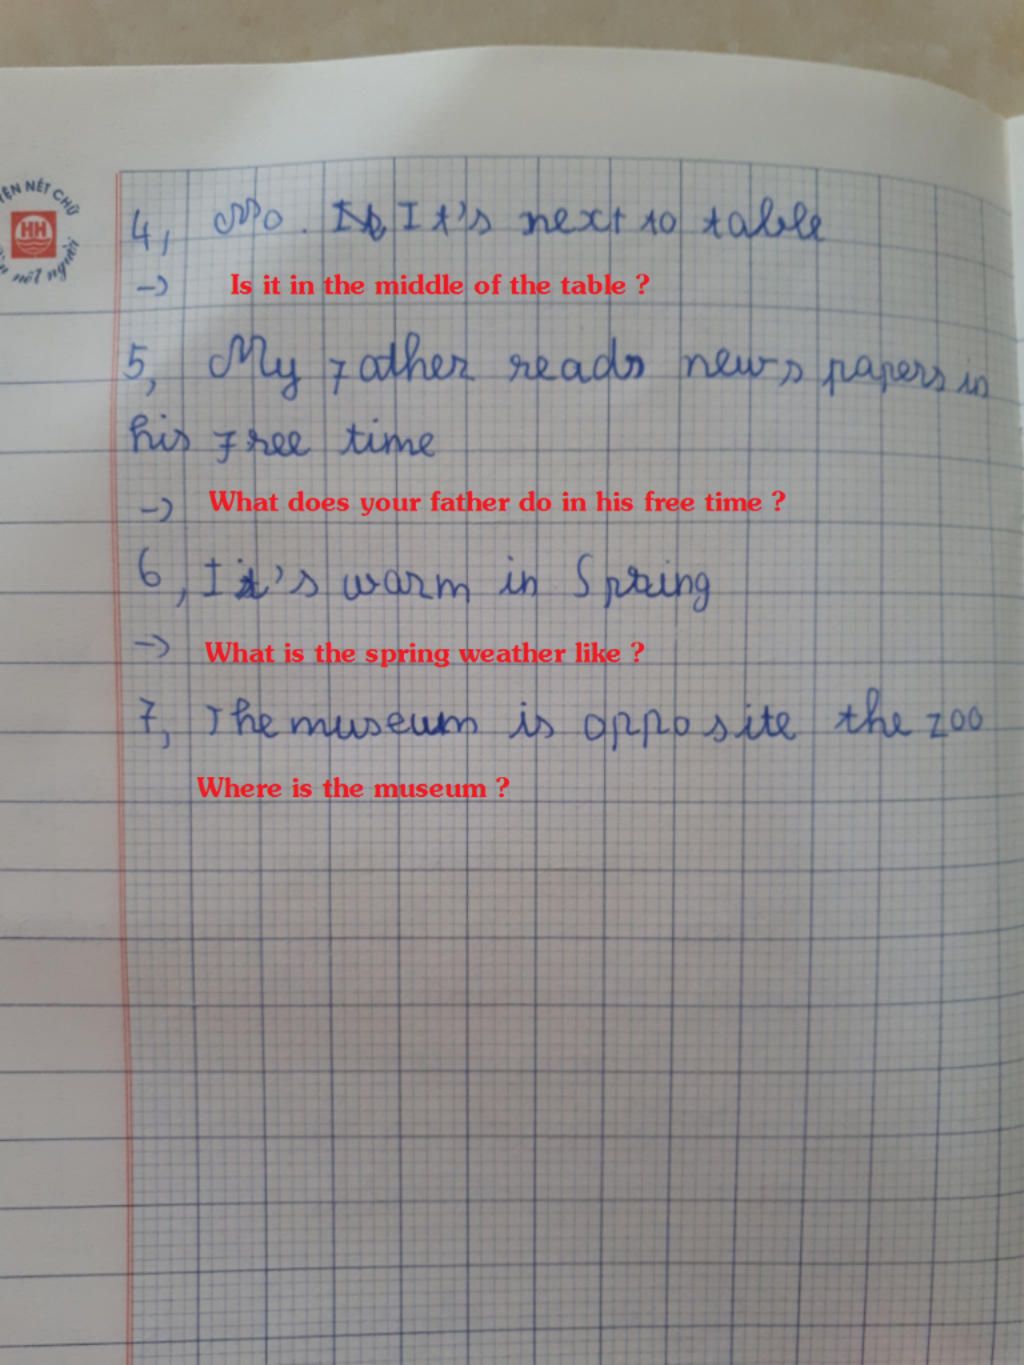 ỆN NÉT CHỮ
HH
nết người
4, No. It's next to table
-> Is it in the middle of the table ?
5, My father reads newspapers in
his free time
-> What does your father do in his free time ?
6, It's warm in Spring
-> What is the spring weather like ?
7, The museum is opposite the zoo
Where is the museum ?